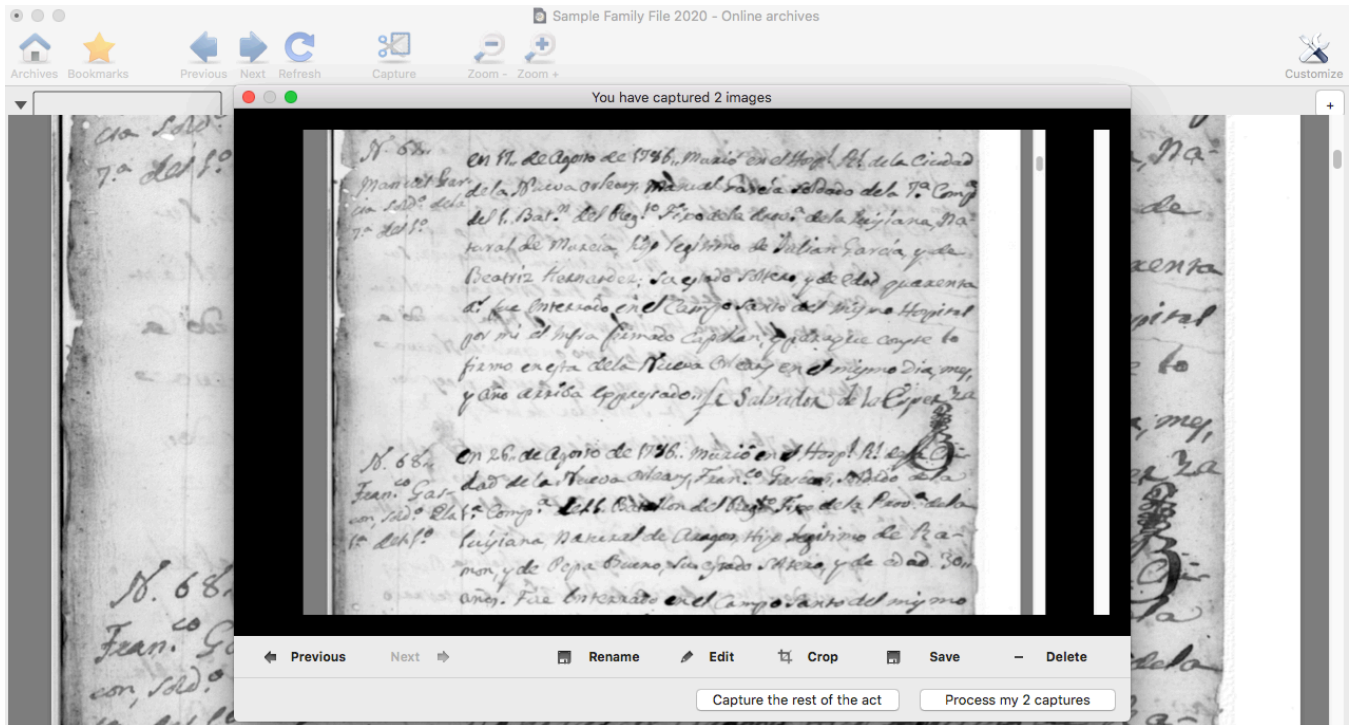 Sample Family File 2020 - Online archives
Archives Bookmarks Previous Next Refresh Capture Zoom - Zoom + Customize
You have captured 2 images
+
N. 67.
Manuel Gar-
cia sold.º dela
7.ª del 1.º
en 17,, de Agosto de 1786,, Murió en el Hosp.l R.l de la Ciudad
de la Nueva Orleans, Manuel García soldado de la 7.ª Comp.ª
del 1. Bat.n del Reg.to Fixo de la Prov.ª de la Luisiana, Na-
tural de Murcia, hijo legitimo de Julian García, y de
Beatriz Hernandez; su estado soltero, y de edad quarenta
a.s fue enterrado en el Campo santo del mismo Hospital
por mi el Infra firmado Capellan, y para que conste lo
firmo en esta de la Nueva Orleans en el mismo dia, mes,
y año arriba expresado. Fr. Salvador de la Esper.za
N. 68.
Fran.co Gas-
con, sold.º de la
1.ª del 1.º
en 26,, de Agosto de 1786,, murió en el Hosp.l R.l de la Ciu-
dad de la Nueva Orleans, Fran.co Gascon, soldado de la
1.ª Comp.ª del 1. Batallon del Reg.to Fixo de la Prov.ª de la
Luisiana, Natural de Aragon, Hijo legitimo de Ra-
mon, y de Pepa Bueno, su estado soltero, y de edad 30,,
años. Fue enterrado en el Campo santo del mismo
cia sold.º
7.ª del 1.º
N. 68.
Fran.co
con, sold.º
Na-
de
renta
pital
to
mes,
za
dela
Previous Next Rename Edit Crop Save Delete
Capture the rest of the act Process my 2 captures